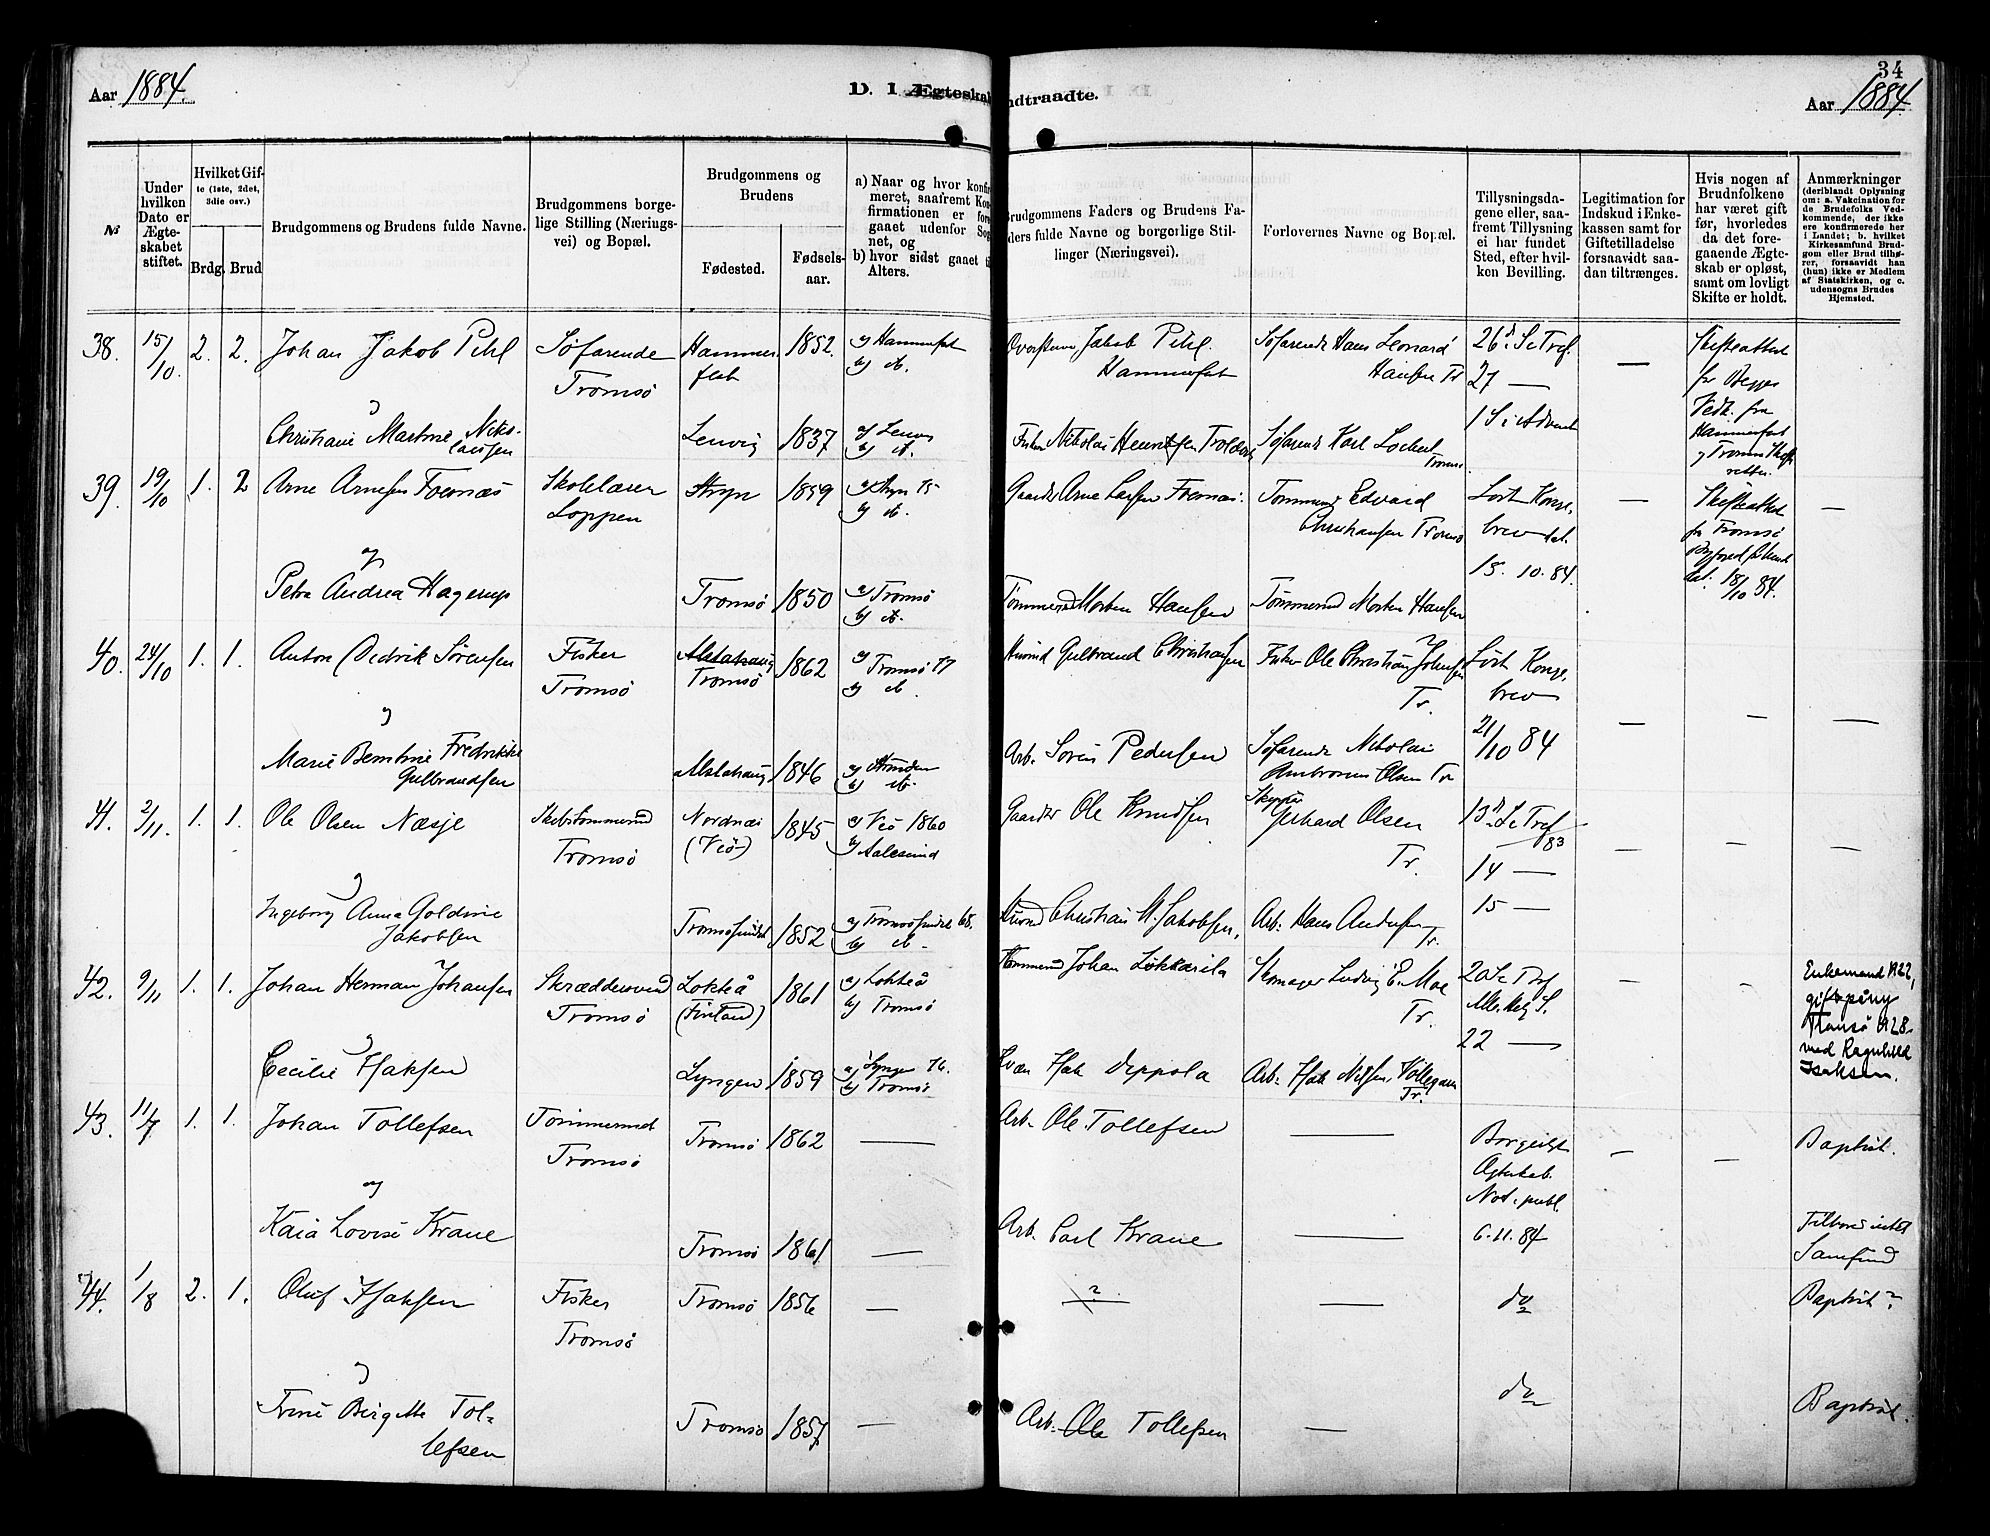 34
Aar 1884.
D. 1 Ægteskab
indtraadte.
Aar 1884
№
Under hvilken Dato er Ægteskabet stiftet.
Hvilket Gifte (1ste, 2det, 3die osv.)
Brdg.
Brud
Brudgommens og Brudens fulde Navne.
Brudgommens borgelige Stilling (Næringsvei) og Bopæl.
Brudgommens og Brudens
Fødested.
Fødselsaar.
a) Naar og hvor konfirmeret, saafremt Konfirmationen er foregaaet udenfor Sognet, og
b) hvor sidst gaaet til Alters.
Brudgommens Faders og Brudens Faders fulde Navne og borgerlige Stillinger (Næringsvei).
Forlovernes Navne og Bopæl.
Tillysningsdagene eller, saafremt Tillysning ei har fundet Sted, efter hvilken Bevilling.
Legitimation for Indskud i Enkekassen samt for Giftetilladelse forsaavidt saadan tiltrænges.
Hvis nogen af Brudnfolkene har været gift før, hvorledes da det foregaaende Ægteskab er opløst, samt om lovligt Skifte er holdt.
Anmærkninger
(deriblandt Oplysning om: a. Vakcination for de Brudefolks Vedkommende, der ikke ere konfirmerede her i Landet; b. hvilket Kirkesamfund Brudgom eller Brud tilhører, forsaavidt han (hun) ikke er Medlem af Statskirken, og c. udensogns Brudes Hjemsted.
38. 15/10. 2. 2. Johan Jakob Pihl Søfarende Tromsø Hammerfest 1852. a) Hammerfest b) do. Jakob Pihl. Hammerfest Søfarende Hans Leonard Hansen Tr 26d. S. e Tref. 27 — —
Skifteattest fr Begges Vedk. fra Hammerfest og Tromsø Skifteretten.
Christiane Martine Nikolaisen Lenvig 1837 a) Lenvig b) do. Fisker Nikolai Søfarende Karl Lochert Tromsø 1 S. i Advent
39. 19/10 1. 2 Arne Arnesen Foernæs Skolelærer Loppen Stryn 1859 a) Stryn 75 b) do. Gaardbr Arne Larsen Foernæs: Tømmermd Edvard Christiansen Tromsø Løst Kongebrev dat. 15. 10. 84. —
Skifteattest fr Tromsø 18/10 84. —
og
Petra Andrea Hagerup Tromsø 1850 a) Tromsø b) do. Tømmermd Morten Hansen Tømmermd Morten Hansen
40. 24/10 1. 1. Anton Dedrik Sørensen Fisker Tromsø Alstahaug Tromsø 1862 a) Tromsø 77 b) do. Gulbrand Christiansen Fisker Ole Christian Johnsen Tr. Løst Kongebrev 21/10 84 — — —
Marie Berntine Fredrikke Gulbrandsen Alstahaug 1846 b) do. Arb. Søren Pedersen Søfarende Nikolai Ambrosius Olsen Tr
41. 2/11. 1. 1. Ole Olsen Næsje Skibstømmermd Tromsø Nordnæs (Veø) 1845 a) Veø 1860 b) Aalesund Gaardbr Ole Knudsen Skipper Gerhard Olsen Tr. 13d. S. e Tref 83 14 — 15 — — — —
Ingeborg Anna Goldine Jakobsen Tromsøsundet 1852 a) Tromsøsundet 68. b) do. Christian M. Jakobsen, Arb: Hans Andersen Tr.
42. 9/11 1. 1. Johan Herman Johansen Skræddersvend Tromsø Lokteå (Finland) 1861 a) Lokteå b) Tromsø Johan Løkkarila Skomager Ludvig E. Moe Tr. 20 S. e Tref Alle. Helg S. 22 — — —
Enkemand 1922, gift påny Tromsø 1928. med Ragnhild Isaksen.
Cecilie Isaksen Lyngen 1859 a) Lyngen 76. b) Tromsø Kvæn Isak Deppola Arb: Isak Nilsen, Vollegaden Tr.
43. 11/7. 1. 1. Johan Tollefsen Tømmermd Tromsø Tromsø 1862 — Arb. Ole Tollefsen — Borgerligt Ægteskab. Not. publ. 6. 11. 84 — — Baptist.
og
Kaia Lovise Krane Tromsø 1861 — Arb. Carl Krane — Tilhører intet Samfund
44. 1/8 2. 1. Oluf Isaksen Fisker Tromsø Tromsø 1856 — ? — do Baptist?
Trine Birgette Tollefsen Tromsø 1857 — Arb. Ole Tollefsen — do Baptist.